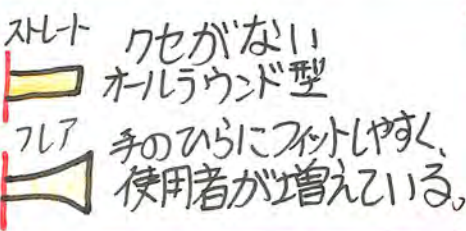 ストレート
クセがない
オールラウンド型
フレア
手のひらにフィットしやすく、
使用者が増えている。